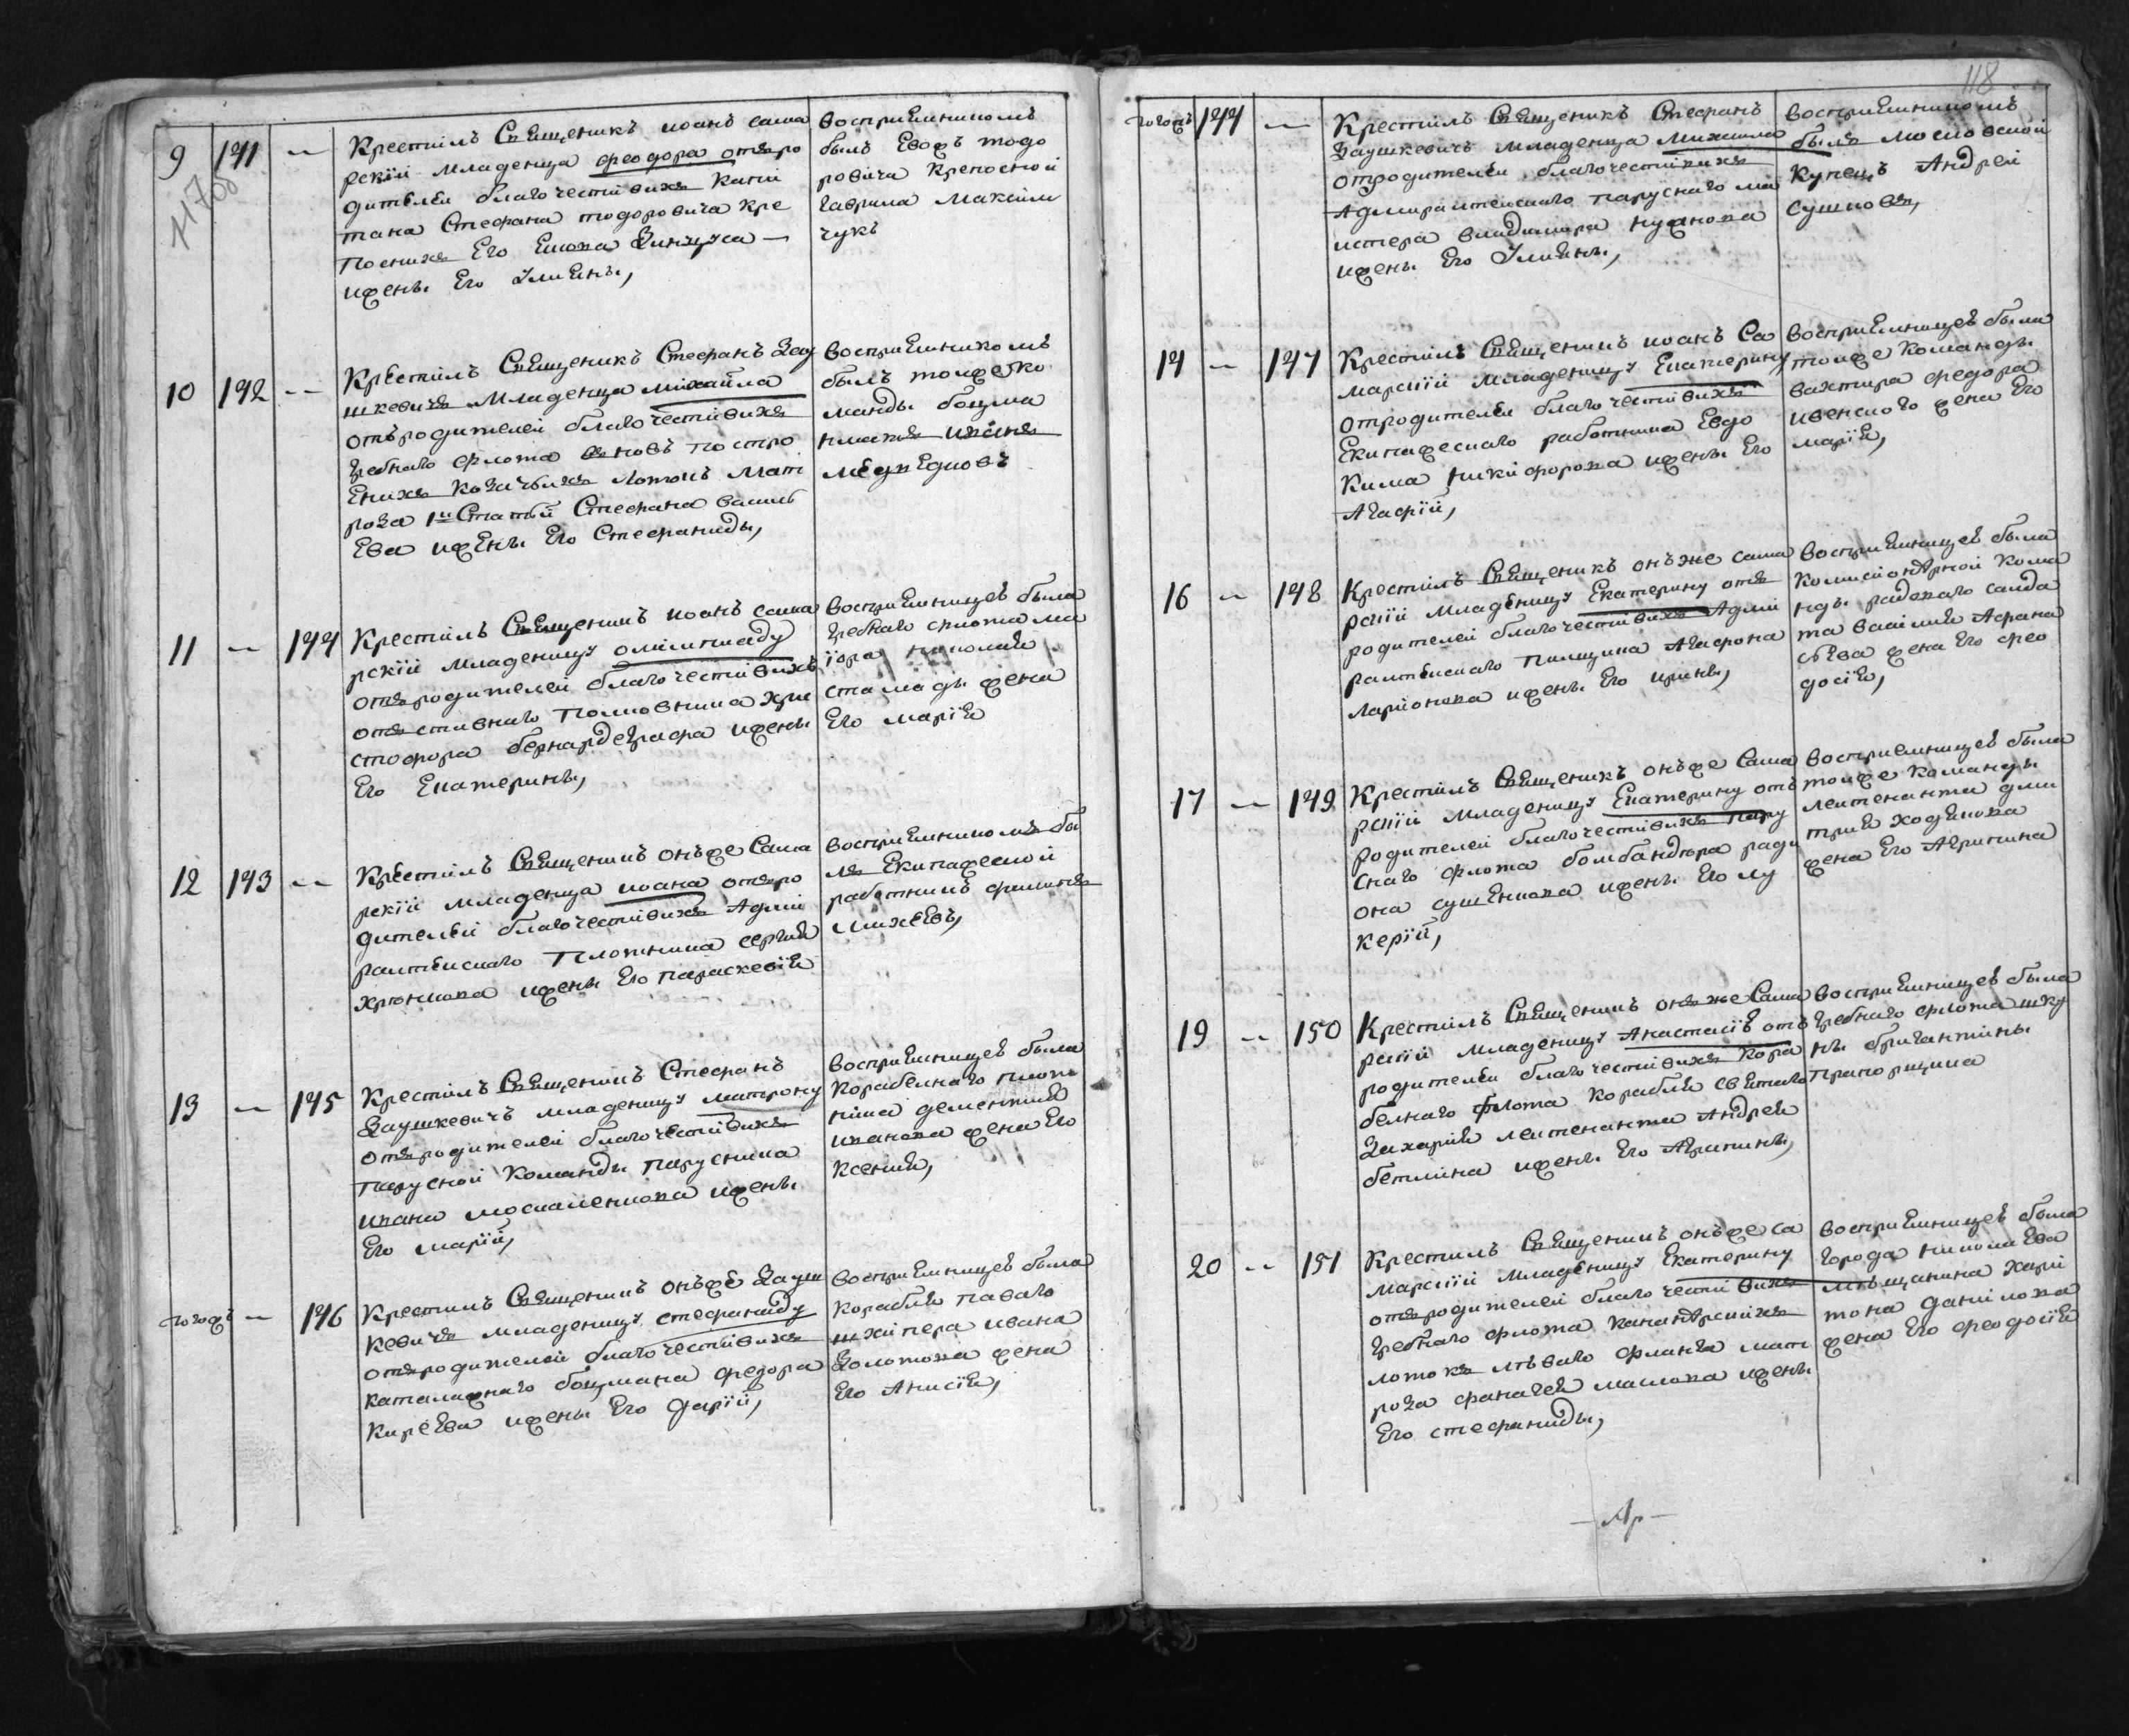 9 141 -- Крестилъ Священикъ иоанъ сама
рскiй младенца феодора отъ ро
дителей благочестивихъ капи
тана Стефана тодоровича кре
посних Его Емока
ижены Его Улияны,
восприемникомъ
былъ Егожъ тодо
ровича крепостной
гаврила максим
чукъ
10 142 -- Крестилъ Священикъ Стефанъ Зау
шкевичъ младенца михайла
отъ родителей благочестивихъ
гребнаго флота вновь постро
Енихъ лотокъ мат
роза 1й Статьи Стефана васил
Ева ижены Его Стефаниды,
восприемникомъ
былъ тойже ко
манды боцма
нматъ иванъ
медведковъ
11 -- 144 Крестилъ Священикъ иоанъ сама
рскiй младеницу олимпиаду
отъ родителей благочестивихъ
отставнаго полковника хри
стофора бернардеграфа ижены
Его Екатерины,
восприемницею была
гребнаго флота ма
iора николая
стамади жена
Его марiя
12 143 -- Крестилъ Священикъ онъже Сама
рскiй младенца иоана отъ ро
дителей благочестивихъ Адми
ралтейскаго плотника сергия
хрюникова ижены Его параскевiи
восприемникомъ бы
лъ Екипажеской
работникъ филипъ
михеевъ,
13 -- 145 Крестилъ Священикъ Стефанъ
Заушкевичъ младеницу матрону
отъ родителей благочестивихъ
парусной команды парусника
ивана москаленкова ижены
Его марiи,
восприемницею была
корабелнаго плот
ника дементия
иванова жена Его
ксения,
тогожъ -- 146 Крестилъ Священикъ онъже Зауш
кевичъ младеницу стефаниду
отъ родителей благочестивихъ
каталажнаго боцмана федора
киреева ижены Его Дарiи,
восприемницею была
корабля павла
шхипера ивана
Золотова жена
Его Анисiя,
118
тогожъ 144 -- Крестилъ Священикъ Стефанъ
Заушкевичъ младенца михаила
отродителей благочестивихъ
Адмиралтейскаго паруснаго ма
истера владимира нужнова
ижены Его Улияны,
восприемникомъ
былъ московской
купецъ Андрей
сушковъ,
14 -- 147 Крестилъ Священикъ иоанъ Са
марскiй младеницу Екатерину
отродителей благочестивихъ
Екипажескаго работника Евдо
кима никифорова ижены Его
Агафiи,
восприемницею была
тойже команды
вахтира федора
ивенского жена Его
марiя,
16 -- 148 Крестилъ Священикъ онъже сама
рскiй младеницу Екатерину отъ
родителей благочестивихъ Адми
ралтейскаго пилщика Агафона
ларионова ижены Его ирины,
восприемницею была
комисионерной кома
нды радоваго салда
та василия Афана
сьева жена Его фео
досiя,
17 -- 149 Крестилъ Священикъ онъже Сама
рскiй младеницу Екатерину отъ
родителей благочестивихъ пару
снаго флота бомбандюра роди
она сушенкова ижены Его лу
керiи,
восприемницею была
тойже команды
лейтенанта дми
трия ходикова
жена Его Агрипина
19 -- 150 Крестилъ Священикъ онъже Сама
рскiй младеницу Анастасiю отъ
родителей благочестивихъ кора
белнаго флота корабля святаго
Захария лейтенанта Андрея
бетлина ижены Его Агрипины,
восприемницею была
гребнаго флота шху
ны бригантины
прапорщика
20 -- 151 Крестилъ Священикъ онъже са
марскiй младеницу Екатерину
отъ родителей благочестивихъ
гребнаго флота
лоток лѣваго фланга мат
роза маслова ижены
Его стефаниды,
восприемницею была
города николаева
мѣщанина хари
тона данилова
жена Его феодосiя